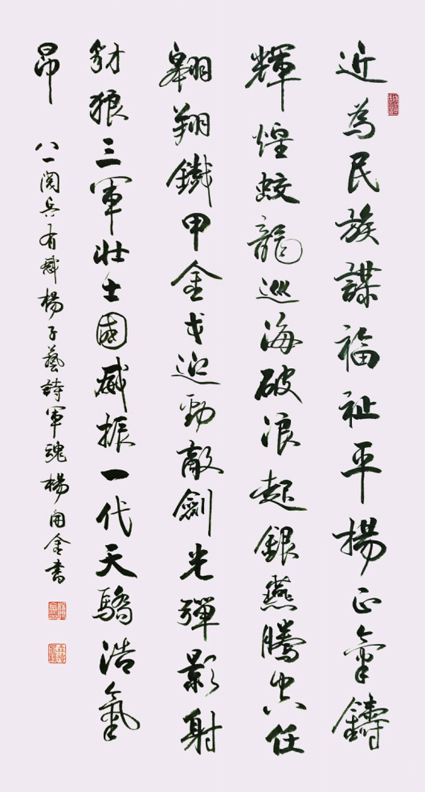 近為民族謀福祉平揚正氣鑄
輝煌蛟龍巡海破浪起銀燕騰空任
翱翔鐵甲金戈迎勁敵劍光彈影射
豺狼三軍壯士國威振一代天驕浩氣
昂 八一閱兵有感楊子藝詩軍魂楊金書